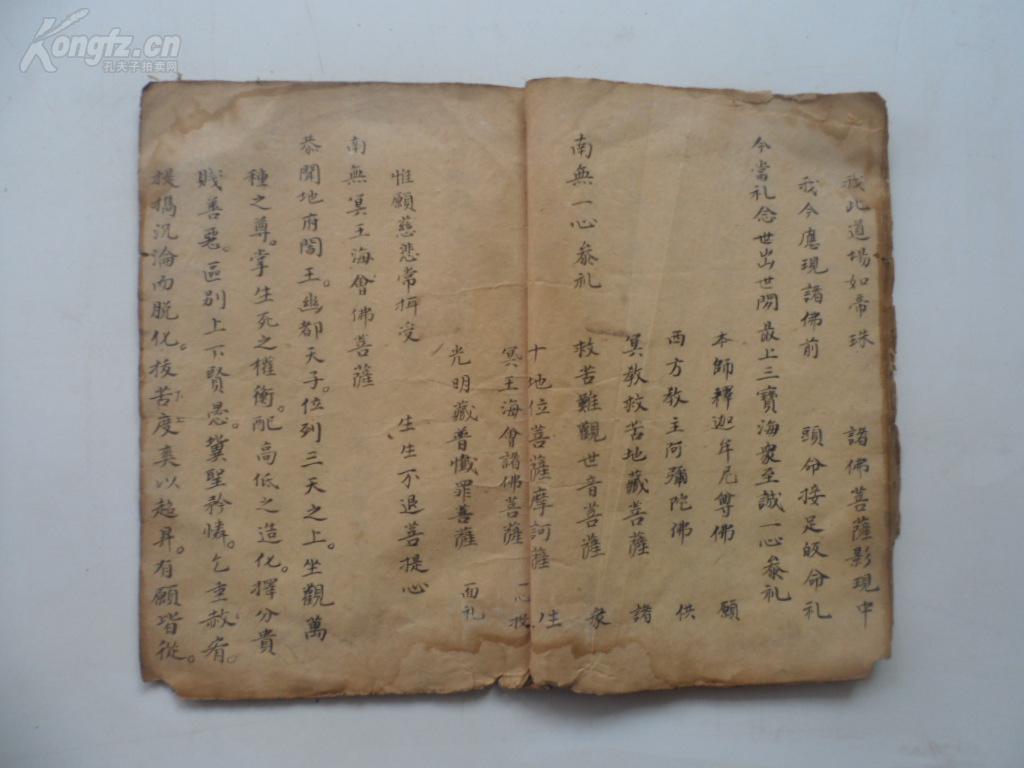 Kongfz.cn
孔夫子拍卖网
我此道場如帝珠 諸佛菩薩影現中
我今應現諸佛前 頭命接足皈命礼
今當礼念世出世間最上三寶海衆至誠一心叅礼
本師釋迦牟尼尊佛 願
西方教主阿彌陀佛 供
冥教救苦地藏菩薩 諸
南無一心叅礼 救苦難觀世音菩薩 衆
十地位菩薩摩訶薩 生
冥王海會諸佛菩薩 一心
光明藏普懺罪菩薩 面礼
惟願慈悲常 受 生生不退菩提心
南無冥王海會佛菩薩
恭聞地府閻王。幽都天子。位列三天之上。坐觀萬
種之尊。掌生死之權衡。配高低之造化。擇分貴
賎善惡。區别上下賢愚。冀聖矜憐。乞垂赦宥。
沉淪而脱化。拔苦度 以超昇。有願皆從。